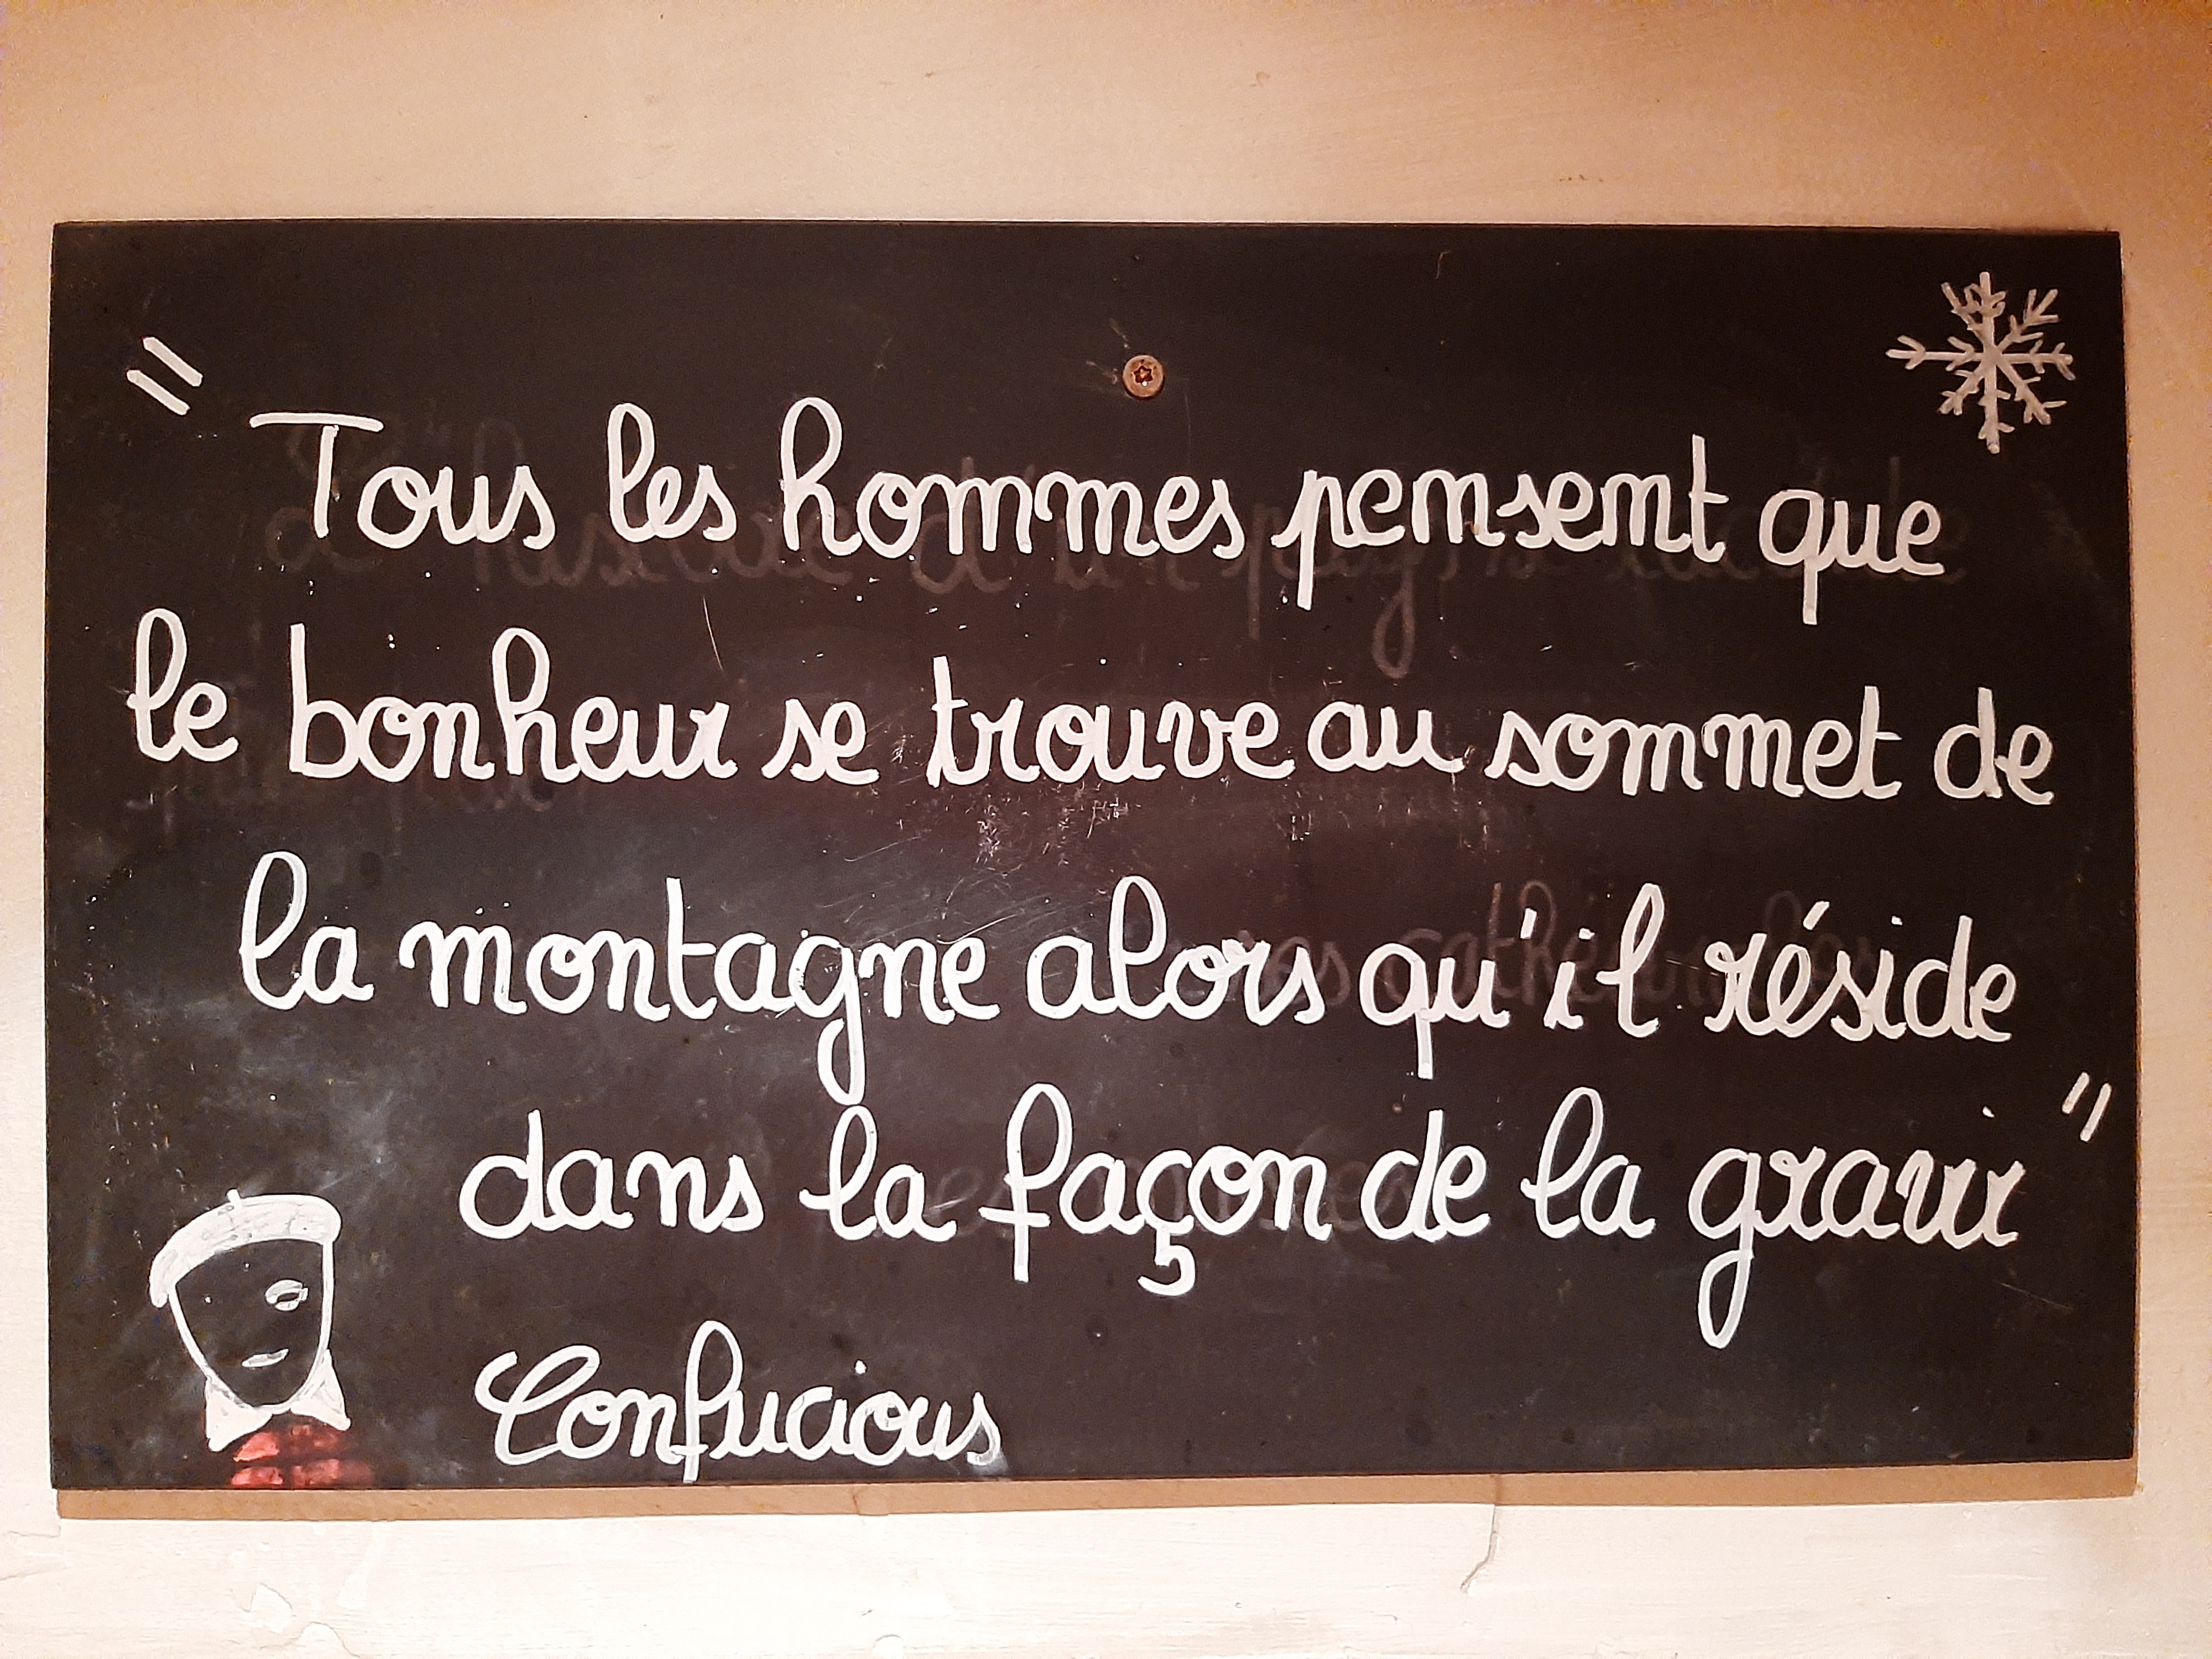 " Tous les hommes pensent que
le bonheur se trouve au sommet de
la montagne alors qu'il réside
dans la façon de la gravir "
Confucious